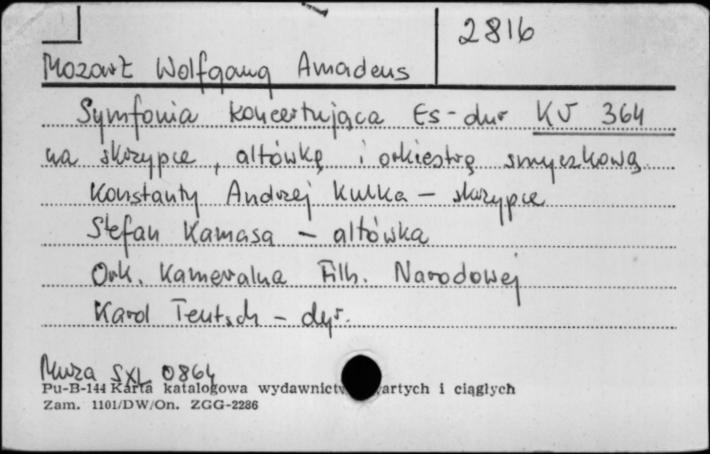 2816
Mozart Wolfgang Amadeus
Symfonia koncertująca Es-dur KV 364
na skrzypce, altówkę i orkiestrę smyczkową
Konstanty Andrzej Kulka – skrzypce
Stefan Kamasa – altówka
Ork. Kameralna Filh. Narodowej
Karol Teutsch – dyr.
Muza SXL 0864
Pu-B-144 Karta katalogowa wydawnictw i ciągłych
Zam. 1101/DW/On. ZGG-2286